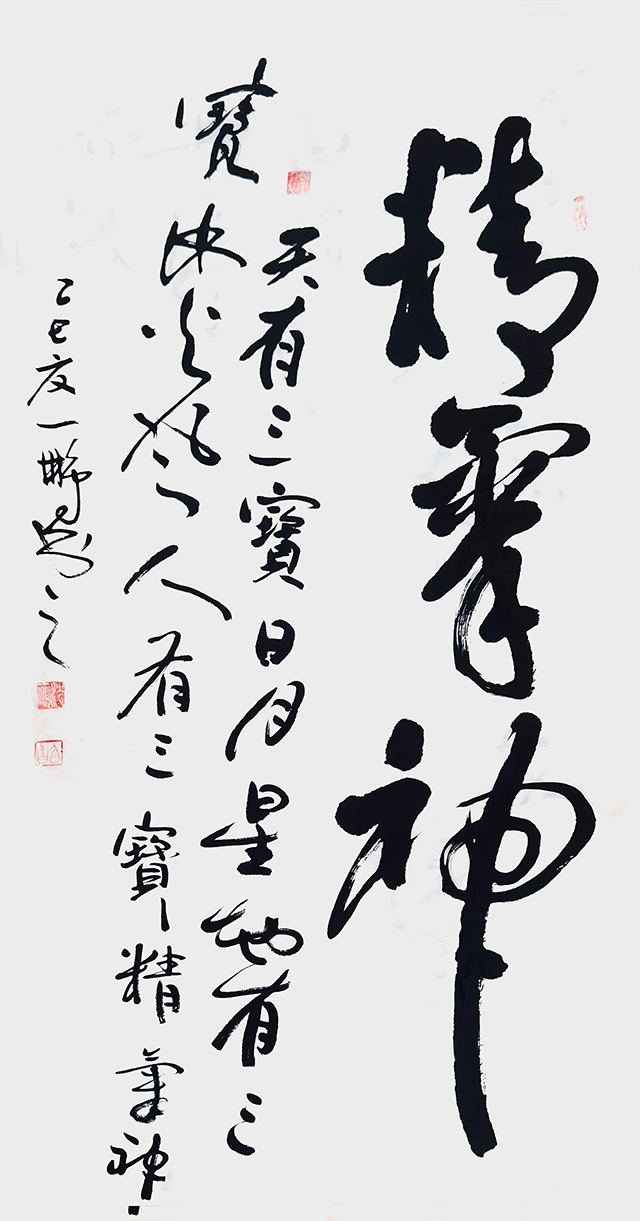 精氣神
天有三寶日月星地有三
寶水火風人有三寶精氣神
乙巳夏一聯書之